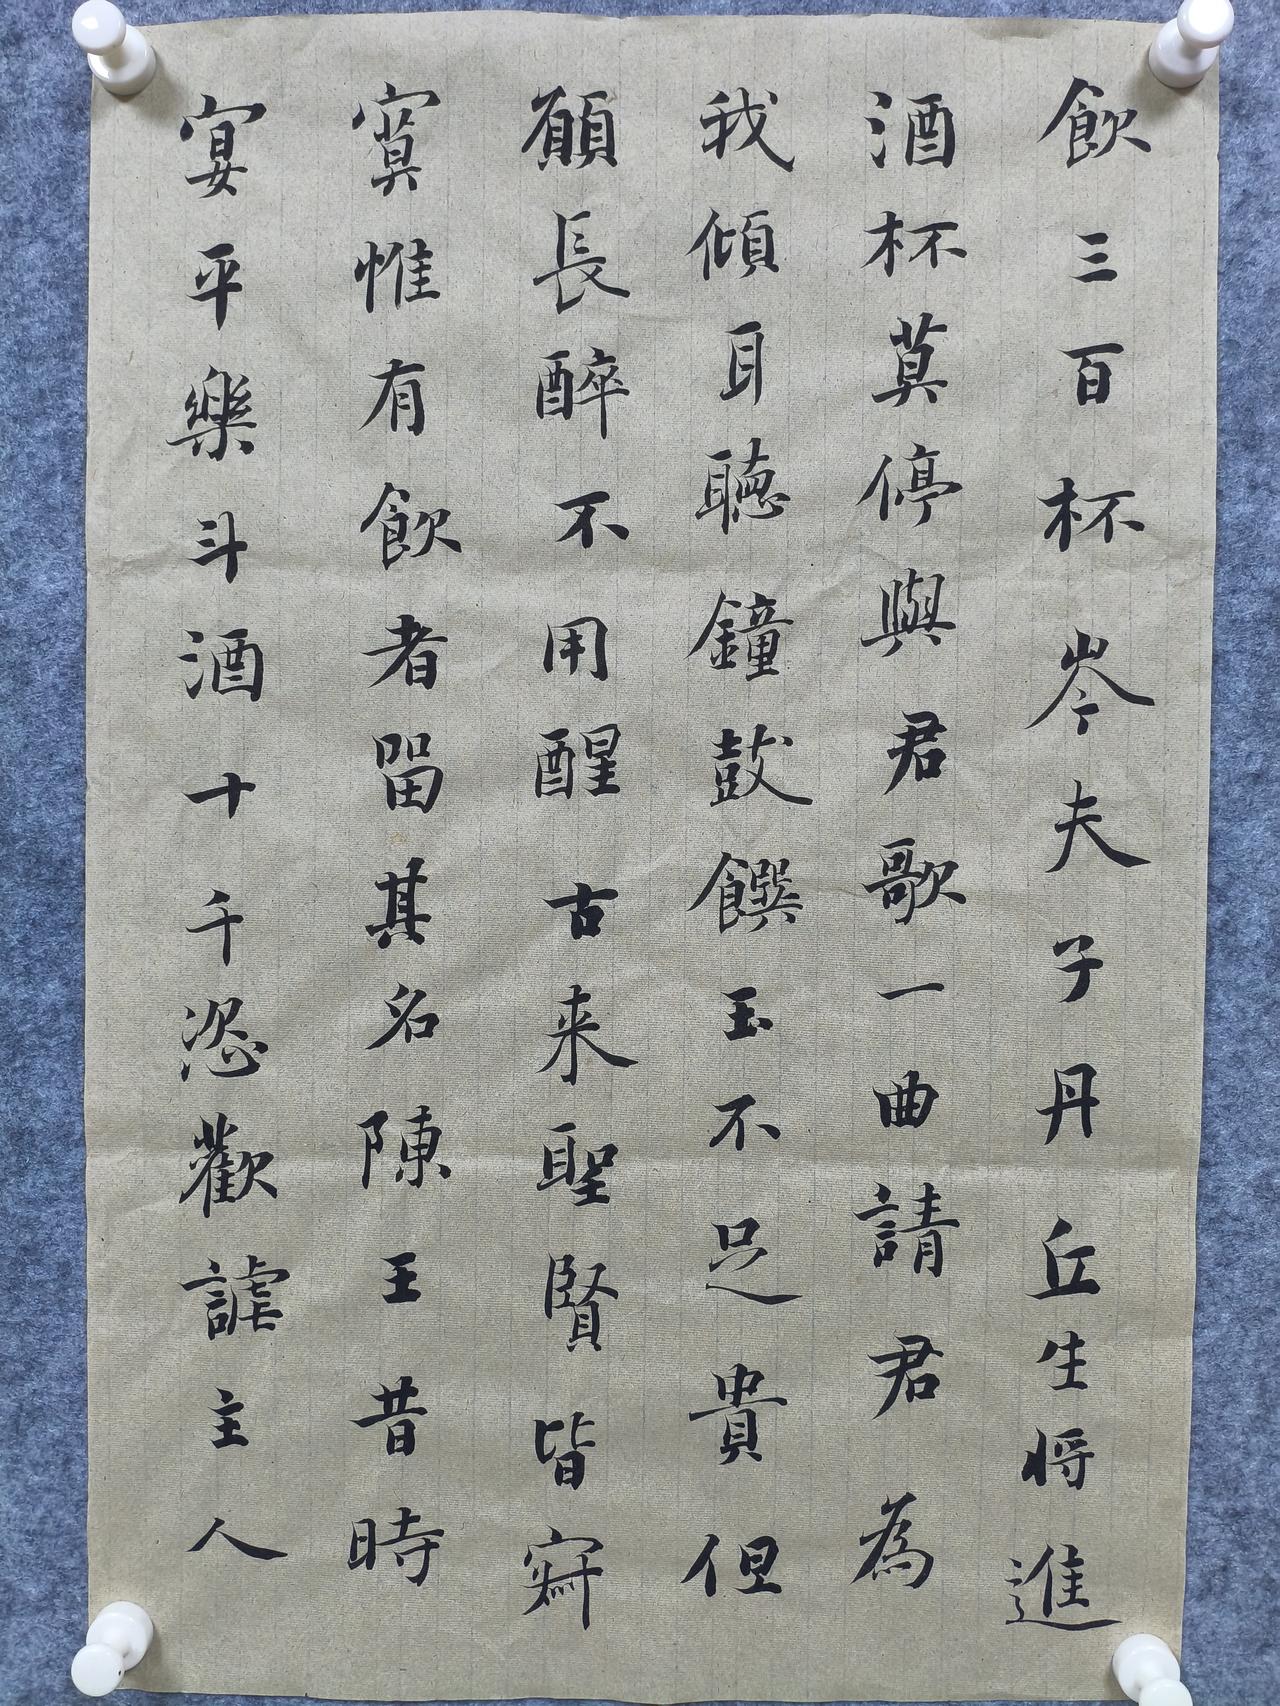 飲三百杯岑夫子丹丘生将進
酒杯莫停與君歌一曲請君為
我傾耳聽鐘鼓饌玉不足貴但
願長醉不用醒古来聖賢皆寂
寞惟有飲者留其名陳王昔時
宴平樂斗酒十千恣歡謔主人